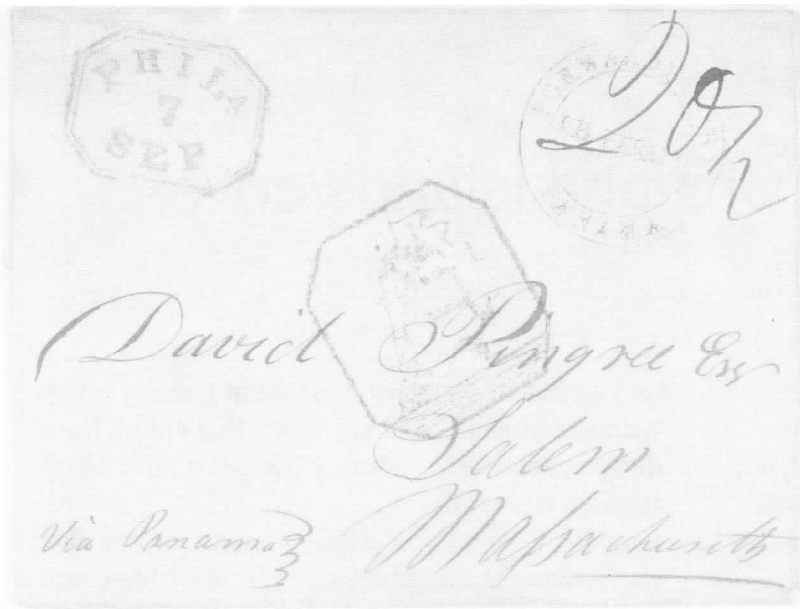 PHILA
7
SEP
20/2
FORWARDED
David Pingree Esq
Salem
Massachusetts
Via Panama